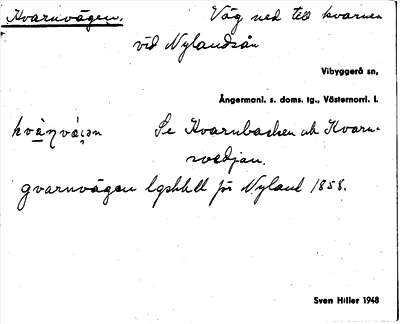 Kvarnvägen. Väg ned till kvarnen
vid Nylandsån
Vibyggerå sn,
Ångermanl. s. doms. tg., Västernorrl. l.
Se Kvarnbacken och Kvarn-
svedjan.
gvarnvägen lgshkll för Nyland 1858.
Sven Hiller 1948